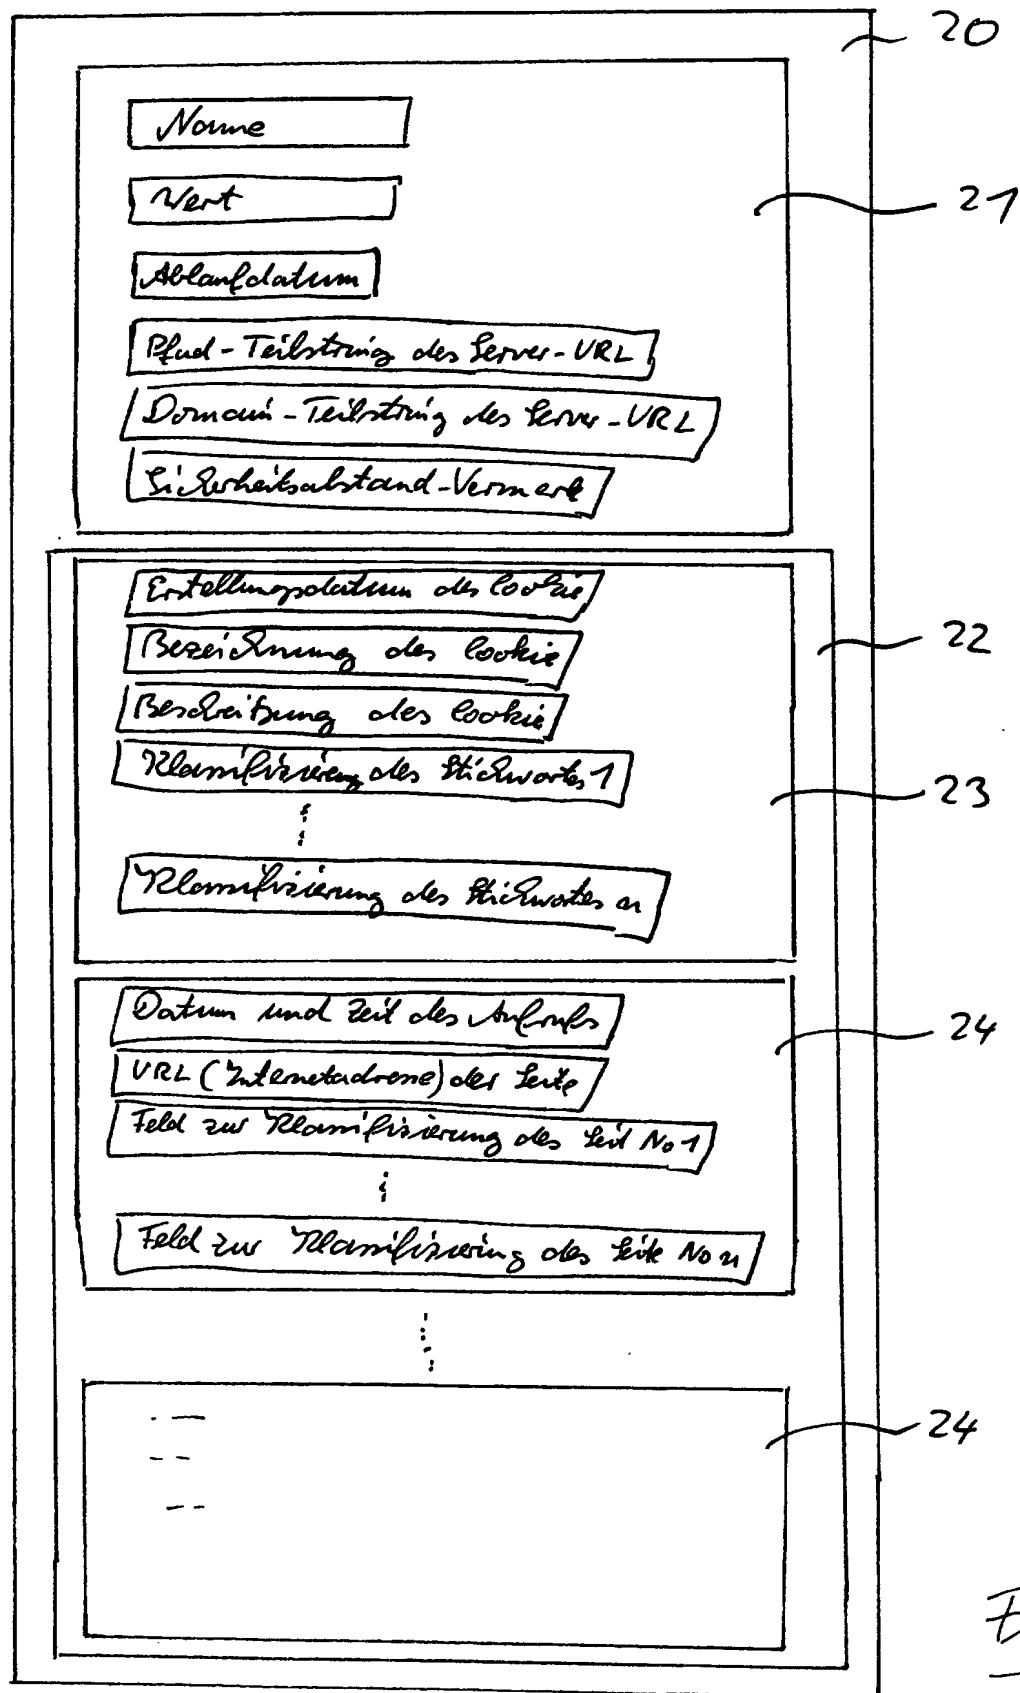 20
Name
Wert
21
Ablaufdatum
Pfad-Teilstring des Server-URL
Domain-Teilstring des Server-URL
Sicherheitsabstand-Vermerk
Erstellungsdatum des Cookie
Bezeichnung des Cookie
22
Beschreibung des Cookie
Klassifizierung des Stichwortes 1
23
Klassifizierung des Stichwortes n
Datum und Zeit des Aufrufs
24
URL (Internetadresse) der Seite
Feld zur Klassifizierung des Seit No 1
Feld zur Klassifizierung des Seite No n
24